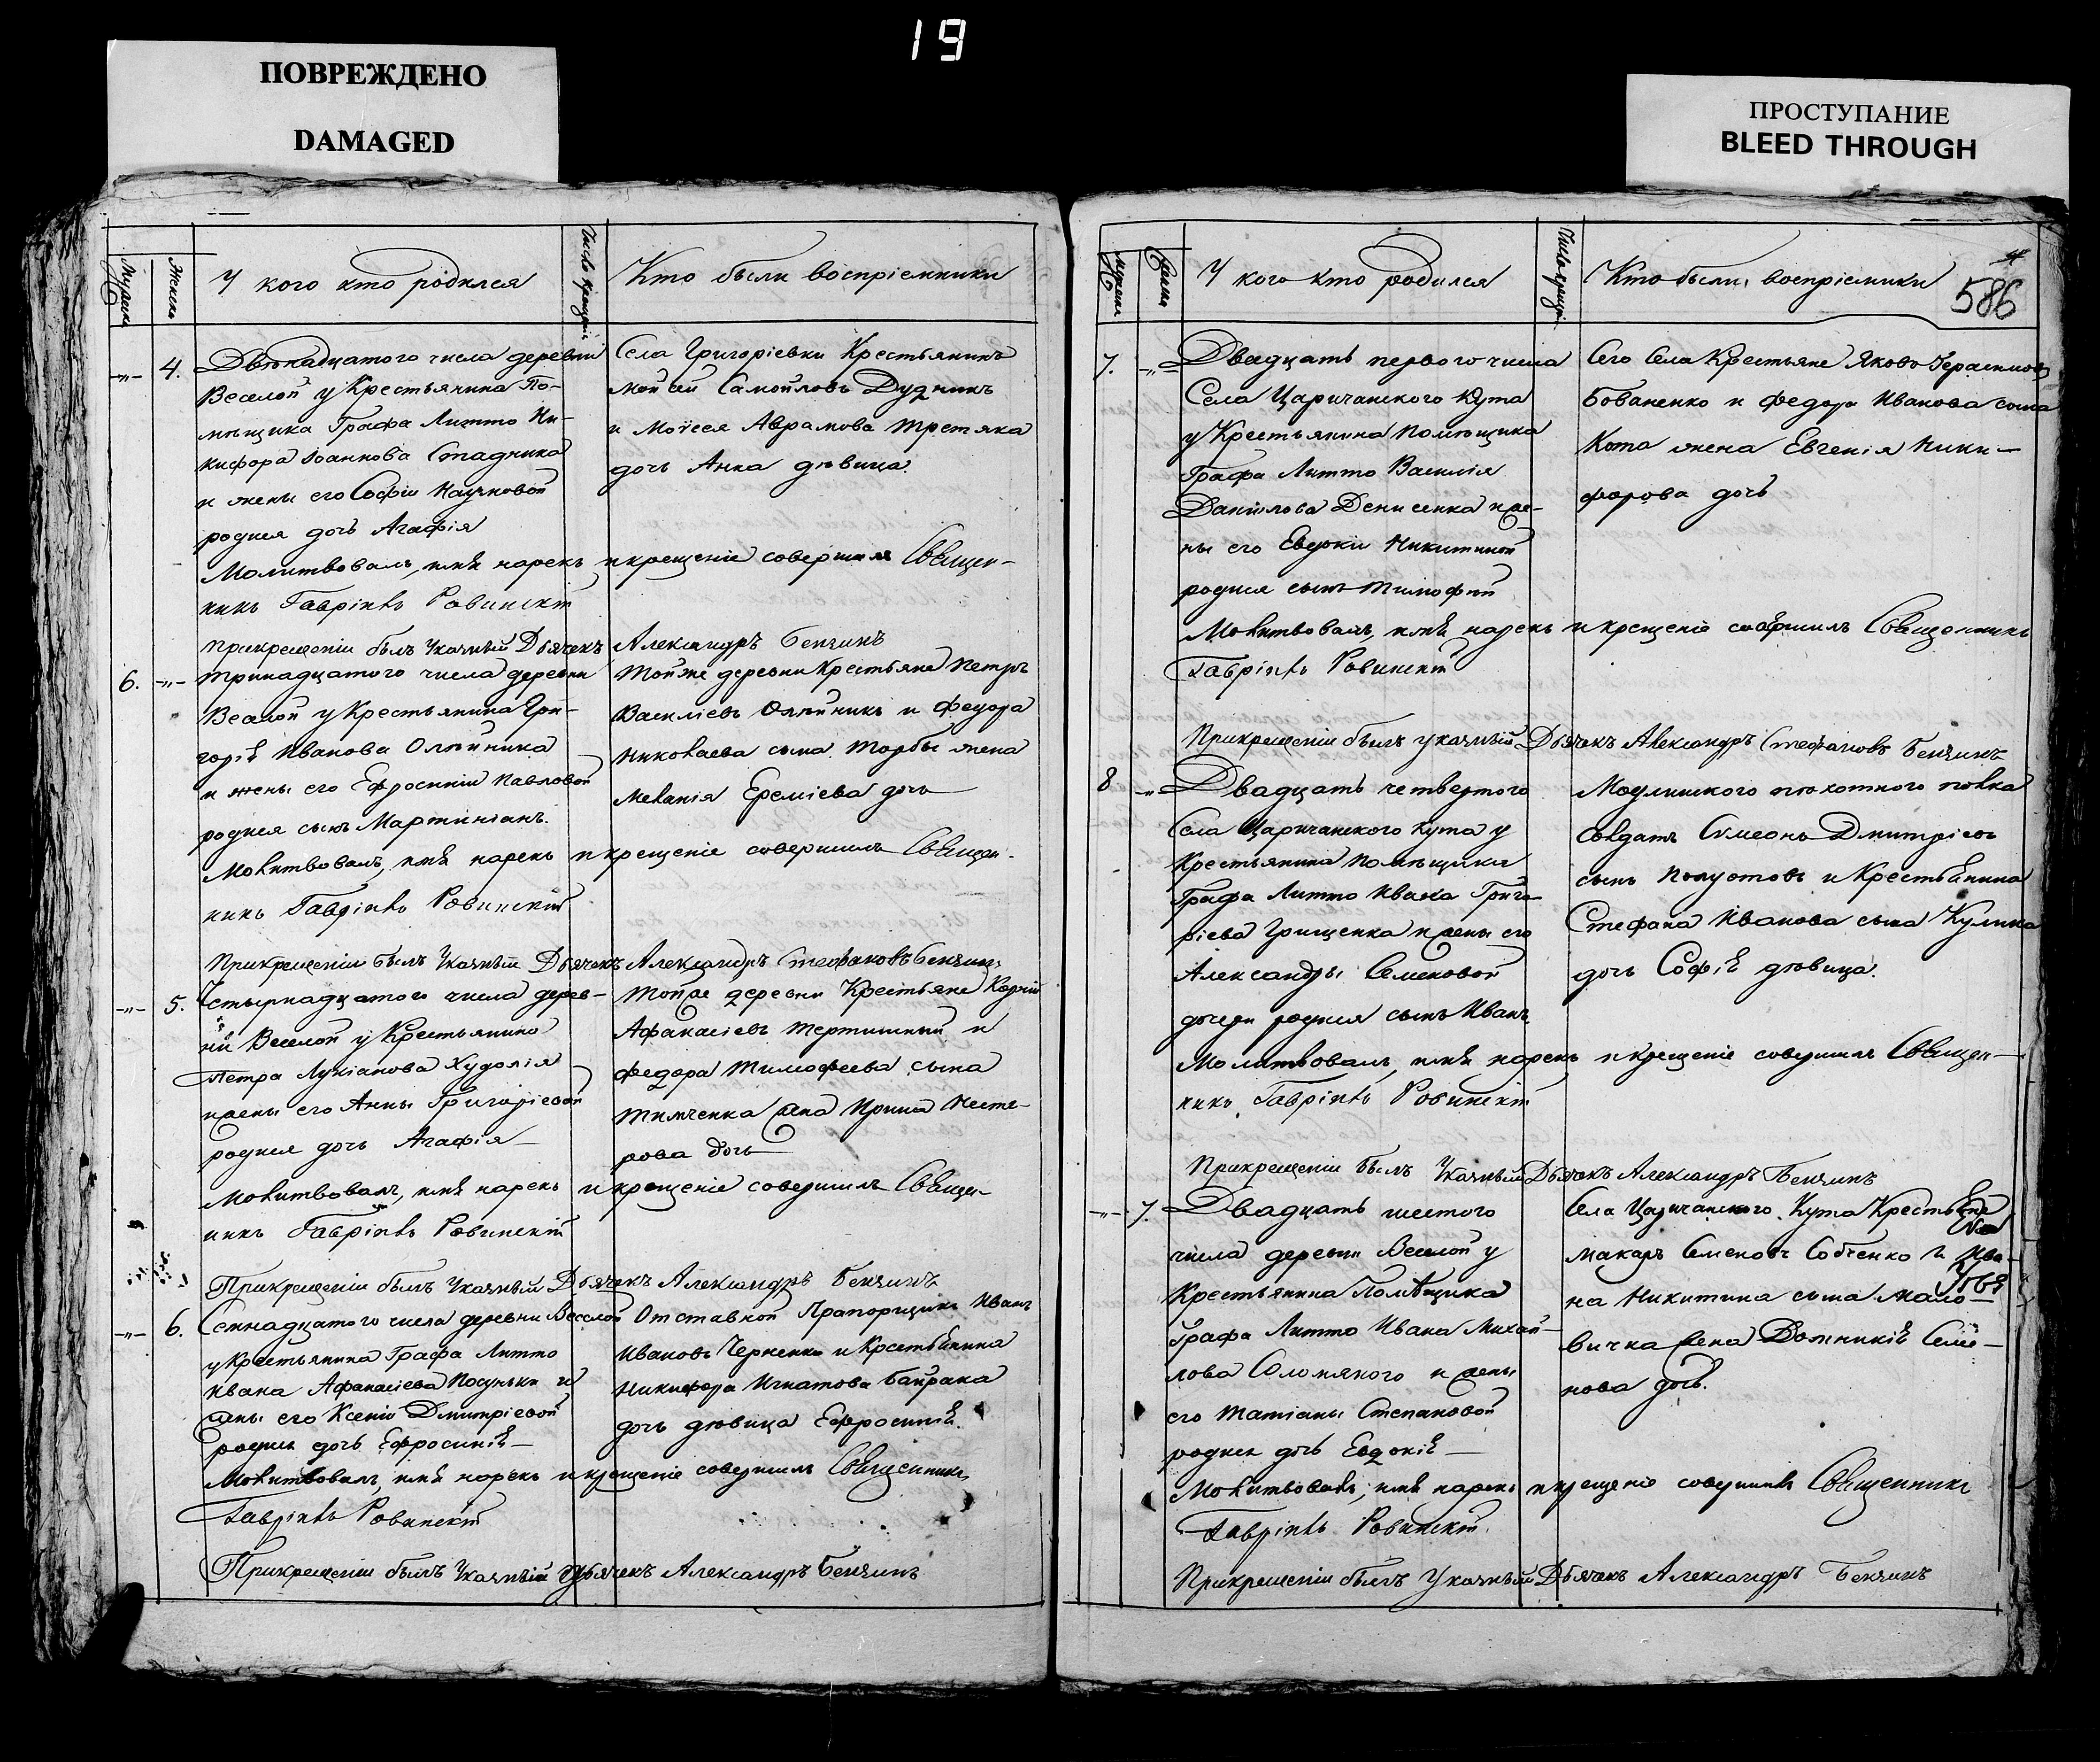 19
ПОВРЕЖДЕНО
DAMAGED
ПРОСТУПАНИЕ
BLEED THROUGH
Мужеска
Женска
У кого кто родился
Число крещенія
Кто были воспріемники
4. Двѣнадцатого числа деревни
Веселой у Крестьянина По-
мѣщика Графа Литто Ни-
кифора Іоаннова Стадника
и жены его Софіи Наумовой
родися дочь Агафія
Села Григоріевки Крестьянинъ
Мойсей Самойловъ Дудникъ
и Моѵсея Аврамова Третяка
дочь Анна дѣвица
Молитвовалъ, имя нарекъ и крещеніе совершилъ Священ-
никъ Гавріилъ Ровинскій
При крещеніи былъ Указный Дьячекъ Александръ Бензинъ
6. Тринадцатого числа деревни
Веселой у Крестьянина Гри-
горія Иванова Олѣйника
и жены его Ефросиніи Павловой
родися сынъ Мартиніанъ.
Той же деревни Крестьяне Петръ
Василіевъ Олѣйникъ и Федора
Николаева сына Торбы жена
Меланія Ереміева дочь
Молитвовалъ, имя нарекъ и крещеніе совершилъ Священ-
никъ Гавріилъ Ровинскій
При крещеніи былъ Указный Дьячекъ Александръ Стефановъ Бензинъ
5. Четырнадцатого числа дерев-
ни Веселой у Крестьянина
Петра Лукіанова Худолія
и жены его Анны Григоріевой
родися дочь Агафія
Той же деревни Крестьяне Корній
Афанасіевъ Тертишный и
Федора Тимофеева сына
Тимченка жена Ирина Несте-
рова дочь
Молитвовалъ, имя нарекъ и крещеніе совершилъ Священ-
никъ Гавріилъ Ровинскій
При крещеніи былъ Указный Дьячекъ Александръ Бензинъ
6. Семнадцатого числа деревни Веселой
у Крестьянина Графа Литто
Ивана Афанасіева Посуньки и
жены его Ксеніи Дмитріевой
родися дочь Ефросинія
Отставной Прапорщикъ Иванъ
Ивановъ Черненко и Крестьянина
Никифора Игнатова Байрака
дочь дѣвица Ефросинія.
Молитвовалъ, имя нарекъ и крещеніе совершилъ Священникъ
Гавріилъ Ровинскій
При крещеніи былъ Указный Дьячекъ Александръ Бензинъ
Мужеска
Женска
У кого кто родился
Число крещенія
Кто были воспріемники
586
7. Двадцать первого числа
Села Царичанского Кута
у Крестьянина Помѣщика
Графа Литто Василія
Данилова Денисенка и же-
ны его Евдокіи Никитиной
родися сынъ Тимофей
Сего Села Крестьяне Яковъ Герасимовъ
Бованенко и Федора Иванова сына
Кота жена Евгенія Ники-
форова дочь
Молитвовалъ, имя нарекъ и крещеніе совершилъ Священникъ
Гавріилъ Ровинскій
При крещеніи былъ указный Дьячекъ Александръ Стефановъ Бензинъ
8 Двадцать четвертого
Села Царичанского Кута у
Крестьянина Помѣщика
Графа Литто Ивана Григо-
ріева Грищенка и жены его
Александры Семеновой
дочери родися сынъ Иванъ
Модлинского пѣхотного полка
Солдатъ Симеонъ Дмитріевъ
сынъ и Крестьянина
Стефана Иванова сына Кулика
дочь Софія дѣвица.
Молитвовалъ, имя нарекъ и крещеніе совершилъ Священ-
никъ Гавріилъ Ровинскій
При крещеніи былъ Указный Дьячекъ Александръ Бензинъ
7. Двадцать шестого
числа деревни Веселой у
Крестьянина Помѣщика
Графа Литто Ивана Михай-
лова Соломяного и жены
его Татіаны Степановой
родися дочь Евдокія
Села Царичанского Кута Крестьяне
Макаръ Семеновъ Собченко и Ива-
на Никитина сына Мало-
вичка жена Домникія Семе-
нова дочь.
Молитвовалъ, имя нарекъ и крещеніе совершилъ Священникъ
Гавріилъ Ровинскій.
При крещеніи былъ Указный Дьячекъ Александръ Бензинъ